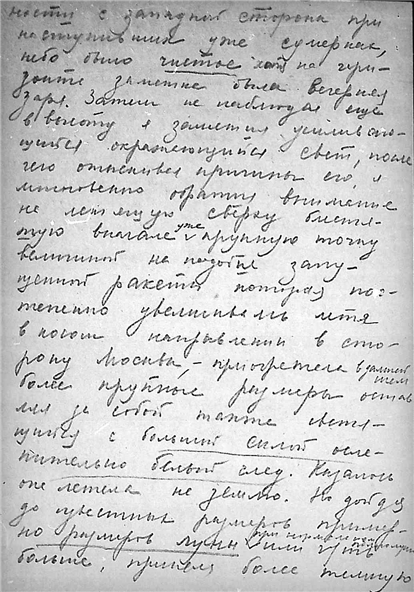 ности с западной стороны при
наступивших уже сумерках,
небо было чистое хотя на гори-
зонте заметна была вечерняя
заря. Затем не наблюдая еще
в высоту я заметил усиливаю-
щийся окружающийся свет, после
чего отыскивая причины его, я
мгновенно обратил внимание
на летящую сверху блестя-
щую вначале уже крупную точку
величиной на подобие запу-
щенной ракеты которая пос-
тепенно увеличиваясь летя
в косом направлении в сто-
рону Москвы, - приобретала в дальнейшем
более крупные размеры остав
ляя за собой также светя-
щийся с большой силой осле-
пительно белый след. Казалось
она летела на землю. Но дойдя
до известных размеров пример-
но размеров луны или чуть
больше, приняла более темную